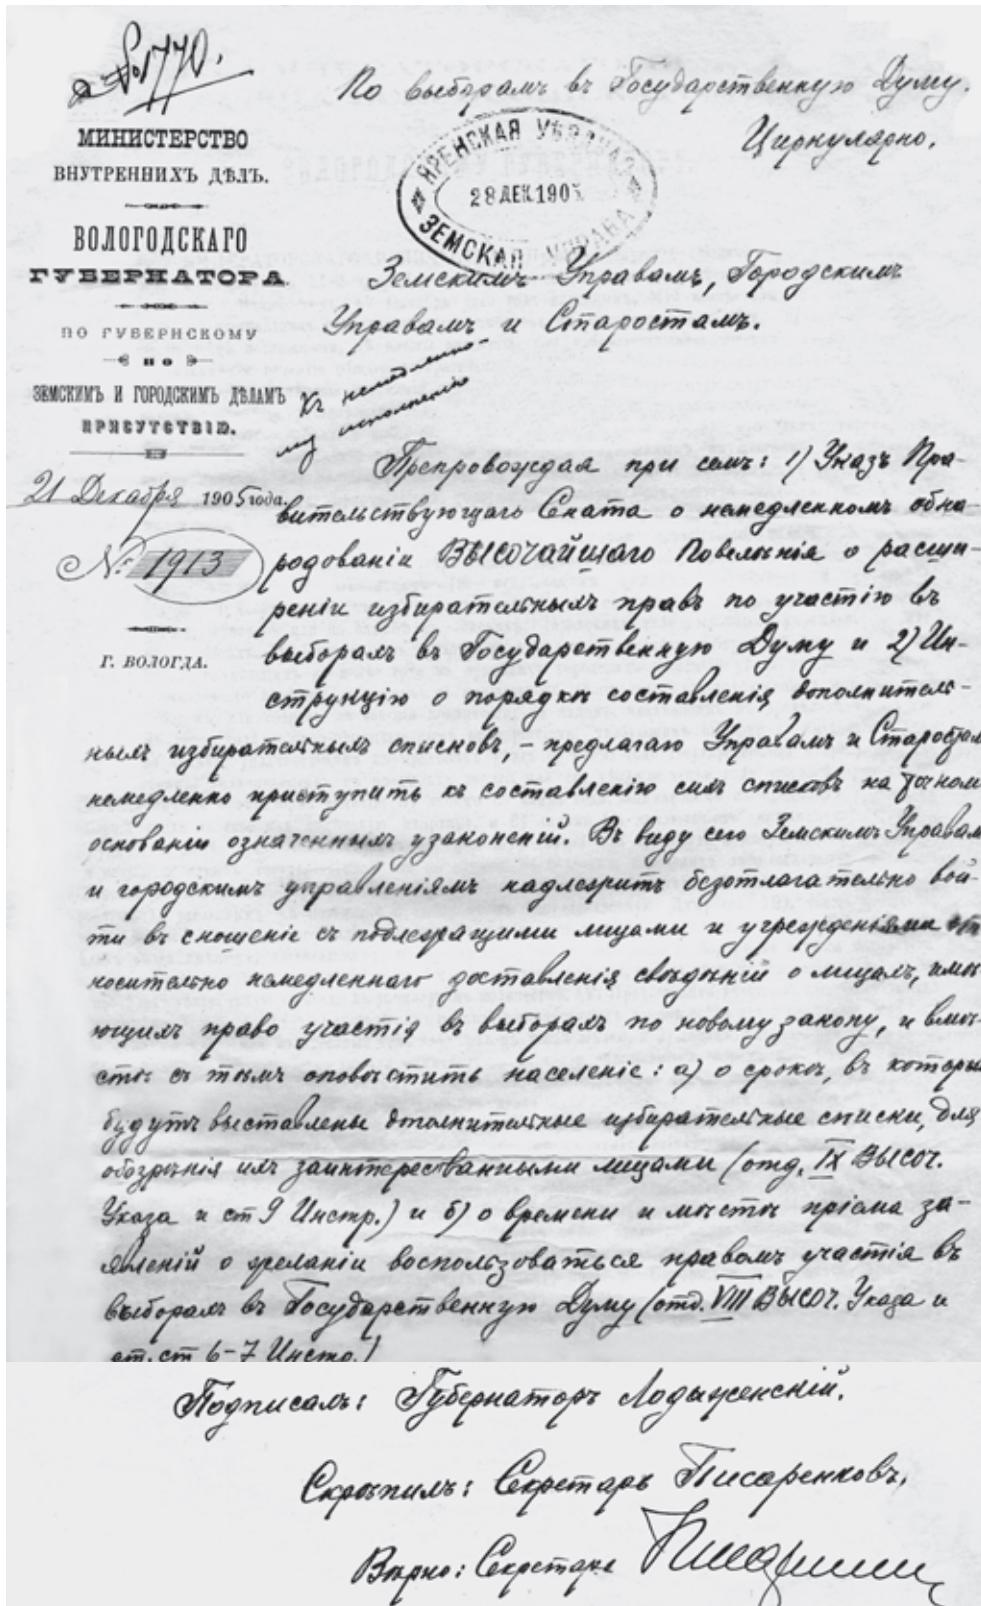 № 1770.
МИНИСТЕРСТВО
ВНУТРЕННИХЪ ДѢЛЪ.
ВОЛОГОДСКАГО
ГУБЕРНАТОРА
ПО ГУБЕРНСКОМУ
ПО
ЗЕМСКИМЪ И ГОРОДСКИМЪ ДѢЛАМЪ
ПРИСУТСТВІЮ.
21 Декабря 1905 года.
№ 1913
Г. ВОЛОГДА.
По выборамъ въ Государственную Думу.
Циркулярно.
ЯРЕНСКАЯ УѢЗДНАЯ
28 ДЕК. 1905
ЗЕМСКАЯ УПРАВА
Земскимъ Управамъ, Городскимъ
Управамъ и Старостамъ.
Къ немедленно-
му исполненію
Препровождая при семъ: 1) Указъ Пра-
вительствующаго Сената о немедленномъ обна-
родованіи ВЫСОЧАЙШАГО Повелѣнія о расши-
реніи избирательныхъ правъ по участію въ
выборахъ въ Государственную Думу и 2) Ин-
струкцію о порядкѣ составленія дополнитель-
ныхъ избирательныхъ списковъ, - предлагаю Управамъ и Старостам
немедленно приступить къ составленію сихъ списковъ на точном
основаніи означенныхъ узаконеній. Въ виду сего Земскимъ Управам
и городскимъ управленіямъ надлежитъ безотлагательно вой-
ти въ сношеніе съ подлежащими лицами и учрежденіями от
носительно немедленнаго доставленія свѣдѣній о лицахъ, имѣ
ющихъ право участія въ выборахъ по новому закону, и вмѣ-
стѣ съ тѣмъ оповѣстить населеніе: а) о срокѣ, въ которы
будутъ выставлены дополнительные избирательные списки, для
обозрѣнія ихъ заинтересованными лицами (отд. IX ВЫСОЧ.
Указа и ст 9 Инстр.) и б) о времени и мѣстѣ пріема за-
явленій о желаніи воспользоваться правомъ участія въ
выборахъ въ Государственную Думу (отд. VIII ВЫСОЧ. Указа и
ст. ст 6-7 Инстр.)
Подписалъ: Губернаторъ Лодыженскій.
Скрѣпилъ: Секретарь Писаренковъ.
Вѣрно: Секретарь